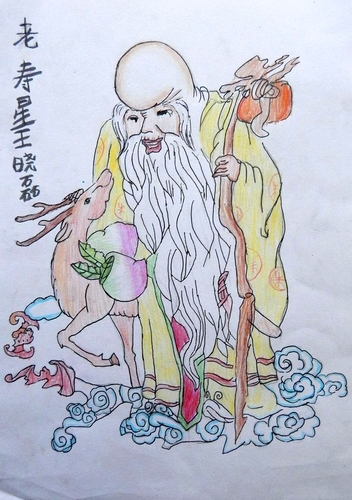 老寿星王晓磊